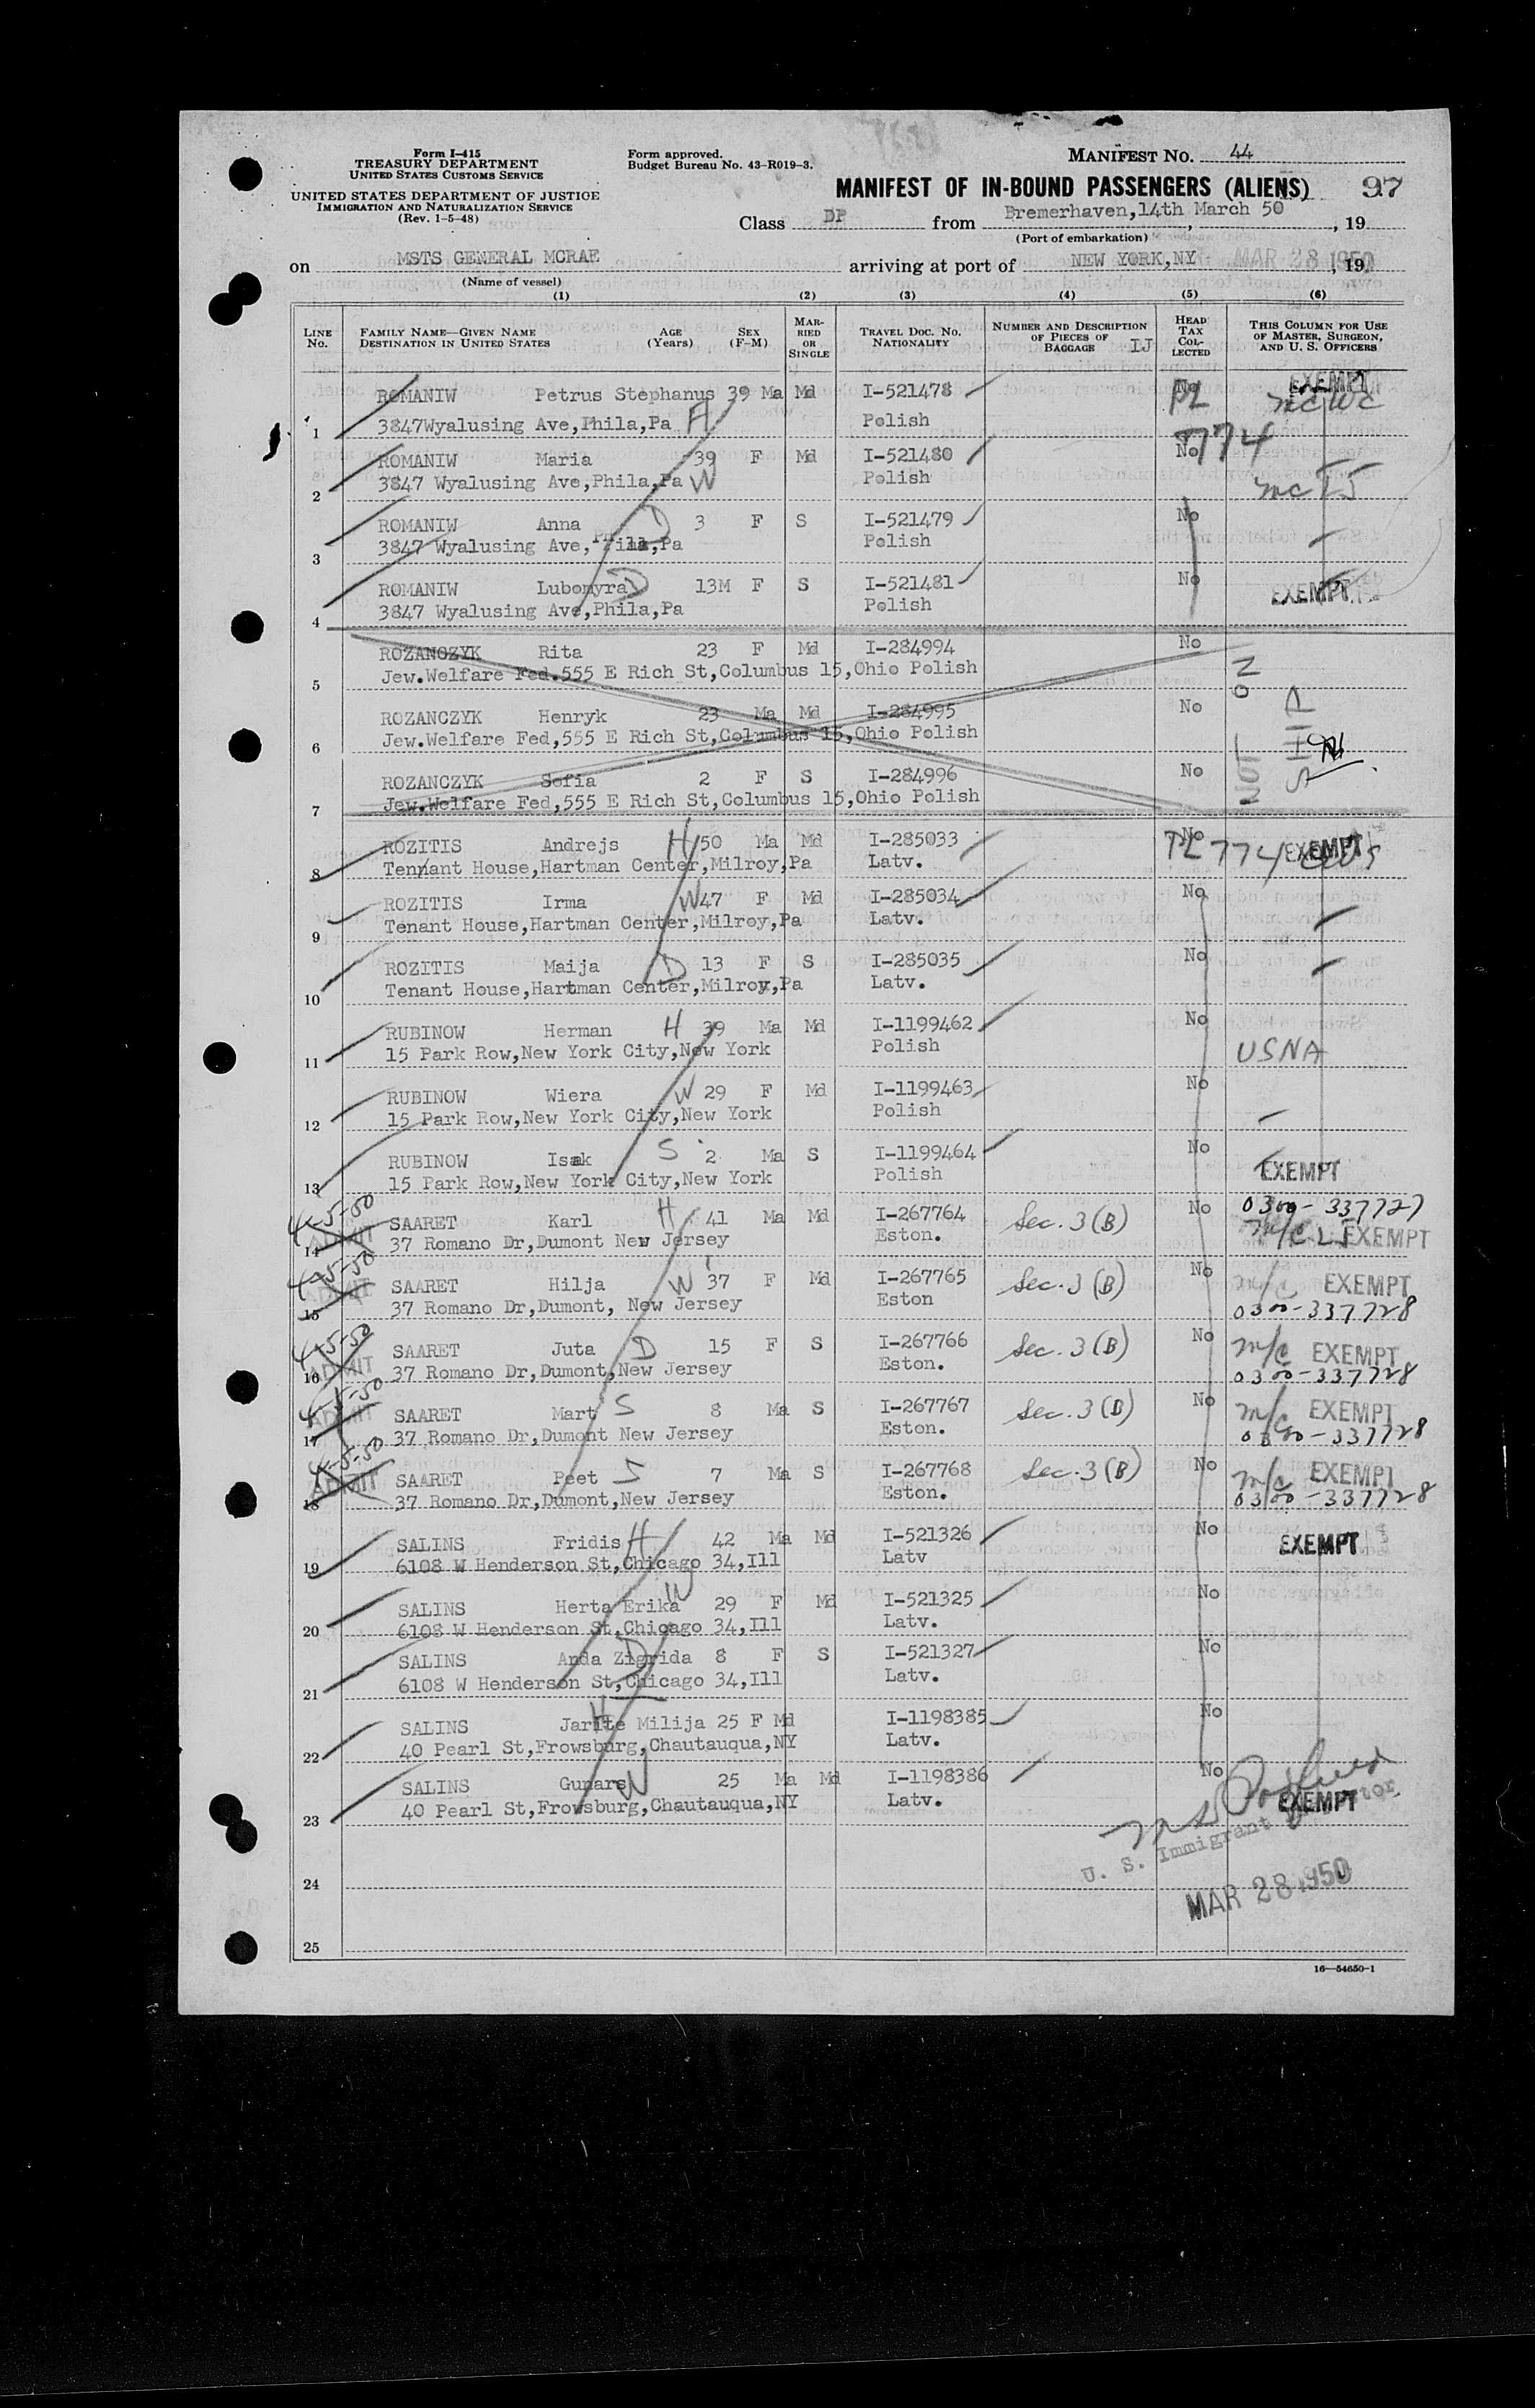 Form I-415
TREASURY DEPARTMENT
UNITED STATES CUSTOMS SERVICE
UNITED STATES DEPARTMENT OF JUSTICE
IMMIGRATION AND NATURALIZATION SERVICE
(Rev. 1-5-48)
Form approved.
Budget Bureau No. 43-R019-3.
MANIFEST NO. 44
MANIFEST OF IN-BOUND PASSENGERS (ALIENS) 97
Class DP from Bremerhaven,14th March 50, 19
(Port of embarkation)
on MSTS GENERAL MCRAE arriving at port of NEW YORK,NY MAR 28 1950, 19
(Name of vessel)
(1) (2) (3) (4) (5) (6)
LINE No. FAMILY NAME—GIVEN NAME DESTINATION IN UNITED STATES AGE (Years) SEX (F-M) MARRIED OR SINGLE TRAVEL DOC. NO. NATIONALITY NUMBER AND DESCRIPTION OF PIECES OF BAGGAGE IJ HEAD TAX COLLECTED THIS COLUMN FOR USE OF MASTER, SURGEON, AND U. S. OFFICERS
ROMANIW Petrus Stephanus 39 Ma Md I-521478 No EXEMPT
1 3847Wyalusing Ave,Phila,Pa H Polish PL NCWC
ROMANIW Maria 39 F Md I-521480 No 774
2 3847 Wyalusing Ave,Phila,Pa W Polish
ROMANIW Anna D 3 F S I-521479 No
3 3847 Wyalusing Ave,Phila,Pa Polish
ROMANIW Lubomyra D 13M F S I-521481 No
4 3847 Wyalusing Ave,Phila,Pa Polish EXEMPT
ROZANCZYK Rita 23 F Md I-284994 No NOT ON SHIP
5 Jew.Welfare Fed.555 E Rich St,Columbus 15,Ohio Polish
ROZANCZYK Henryk 23 Ma Md I-284995 No
6 Jew.Welfare Fed,555 E Rich St,Columbus 15,Ohio Polish
ROZANCZYK Sofia 2 F S I-284996 No
7 Jew.Welfare Fed,555 E Rich St,Columbus 15,Ohio Polish
ROZITIS Andrejs H 50 Ma Md I-285033 No PL 774 EXEMPT
8 Tennant House,Hartman Center,Milroy,Pa Latv.
ROZITIS Irma W 47 F Md I-285034 No
9 Tenant House,Hartman Center,Milroy,Pa Latv.
ROZITIS Maija D 13 F S I-285035 No
10 Tenant House,Hartman Center,Milroy,Pa Latv.
RUBINOW Herman H 39 Ma Md I-1199462 No
11 15 Park Row,New York City,New York Polish USNA
RUBINOW Wiera W 29 F Md I-1199463 No
12 15 Park Row,New York City,New York Polish
RUBINOW Isak S 2 Ma S I-1199464 No
13 15 Park Row,New York City,New York Polish EXEMPT
4-5-50 SAARET Karl H 41 Ma Md I-267764 Sec. 3(B) No 0300-337727
14 ADMIT 37 Romano Dr,Dumont New Jersey Eston. M/C EXEMPT
4-5-50 SAARET Hilja W 37 F Md I-267765 Sec. 3(B) No M/C EXEMPT
15 ADMIT 37 Romano Dr,Dumont, New Jersey Eston 0300-337728
4-5-50 SAARET Juta D 15 F S I-267766 Sec. 3(B) No M/C EXEMPT
16 ADMIT 37 Romano Dr,Dumont,New Jersey Eston. 0300-337728
4-5-50 SAARET Mart S 8 Ma S I-267767 Sec. 3(B) No M/C EXEMPT
17 ADMIT 37 Romano Dr,Dumont New Jersey Eston. 0300-337728
4-5-50 SAARET Peet S 7 Ma S I-267768 Sec. 3(B) No M/C EXEMPT
18 ADMIT 37 Romano Dr,Dumont,New Jersey Eston. 0300-337728
SALINS Fridis H 42 Ma Md I-521326 No EXEMPT
19 6108 W Henderson St,Chicago 34,Ill Latv
SALINS Herta Erika W 29 F Md I-521325 No
20 6108 W Henderson St,Chicago 34,Ill Latv.
SALINS Anda Zigrida D 8 F S I-521327 No
21 6108 W Henderson St,Chicago 34,Ill Latv.
SALINS Jarite Milija 25 F Md I-1198385 No
22 40 Pearl St,Frowsburg,Chautauqua,NY Latv.
SALINS Gunars W 25 Ma Md I-1198386 No
23 40 Pearl St,Frowsburg,Chautauqua,NY Latv. EXEMPT
U. S. Immigrant Inspector
24
MAR 28 1950
25
16—54650-1